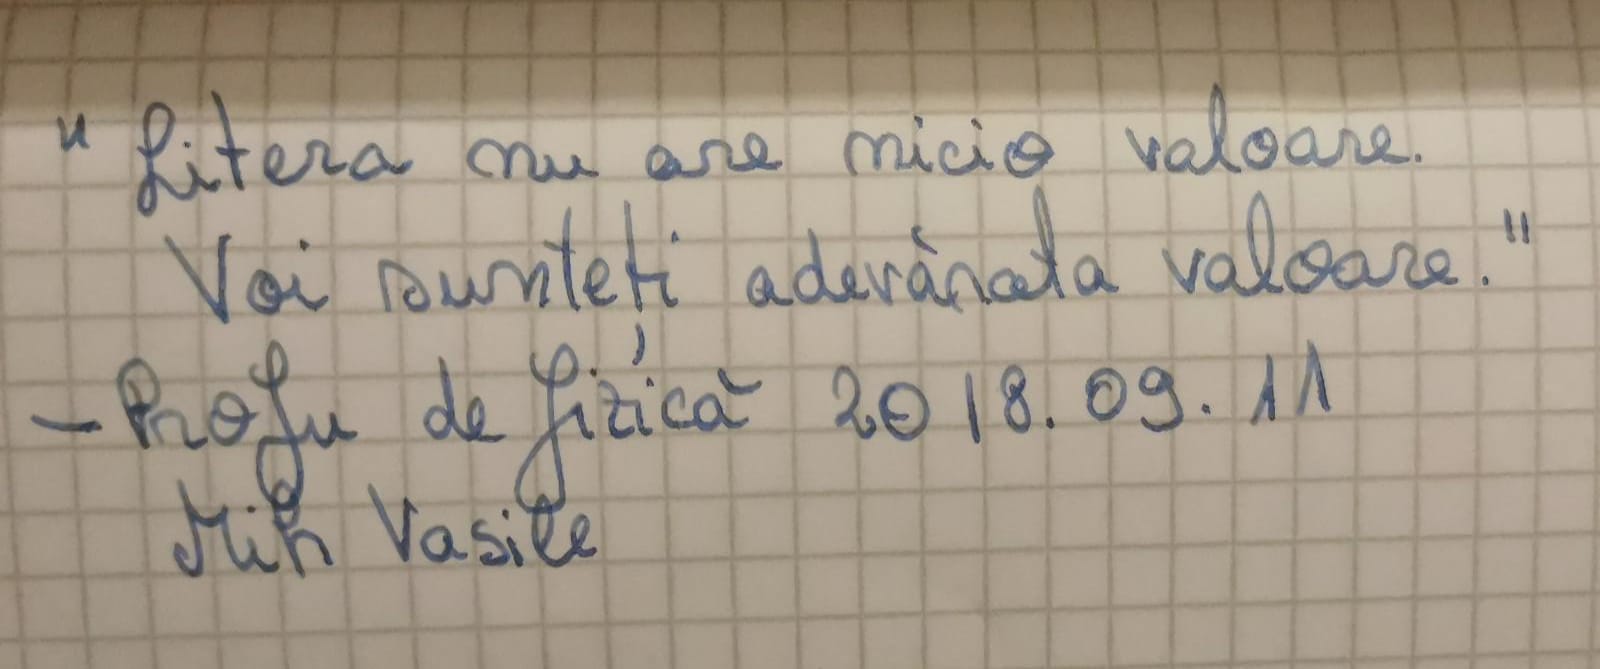 "Litera nu are nicio valoare.
Voi sunteți adevărata valoare."
- Profu de fizică 2018.09.11
Mih Vasile